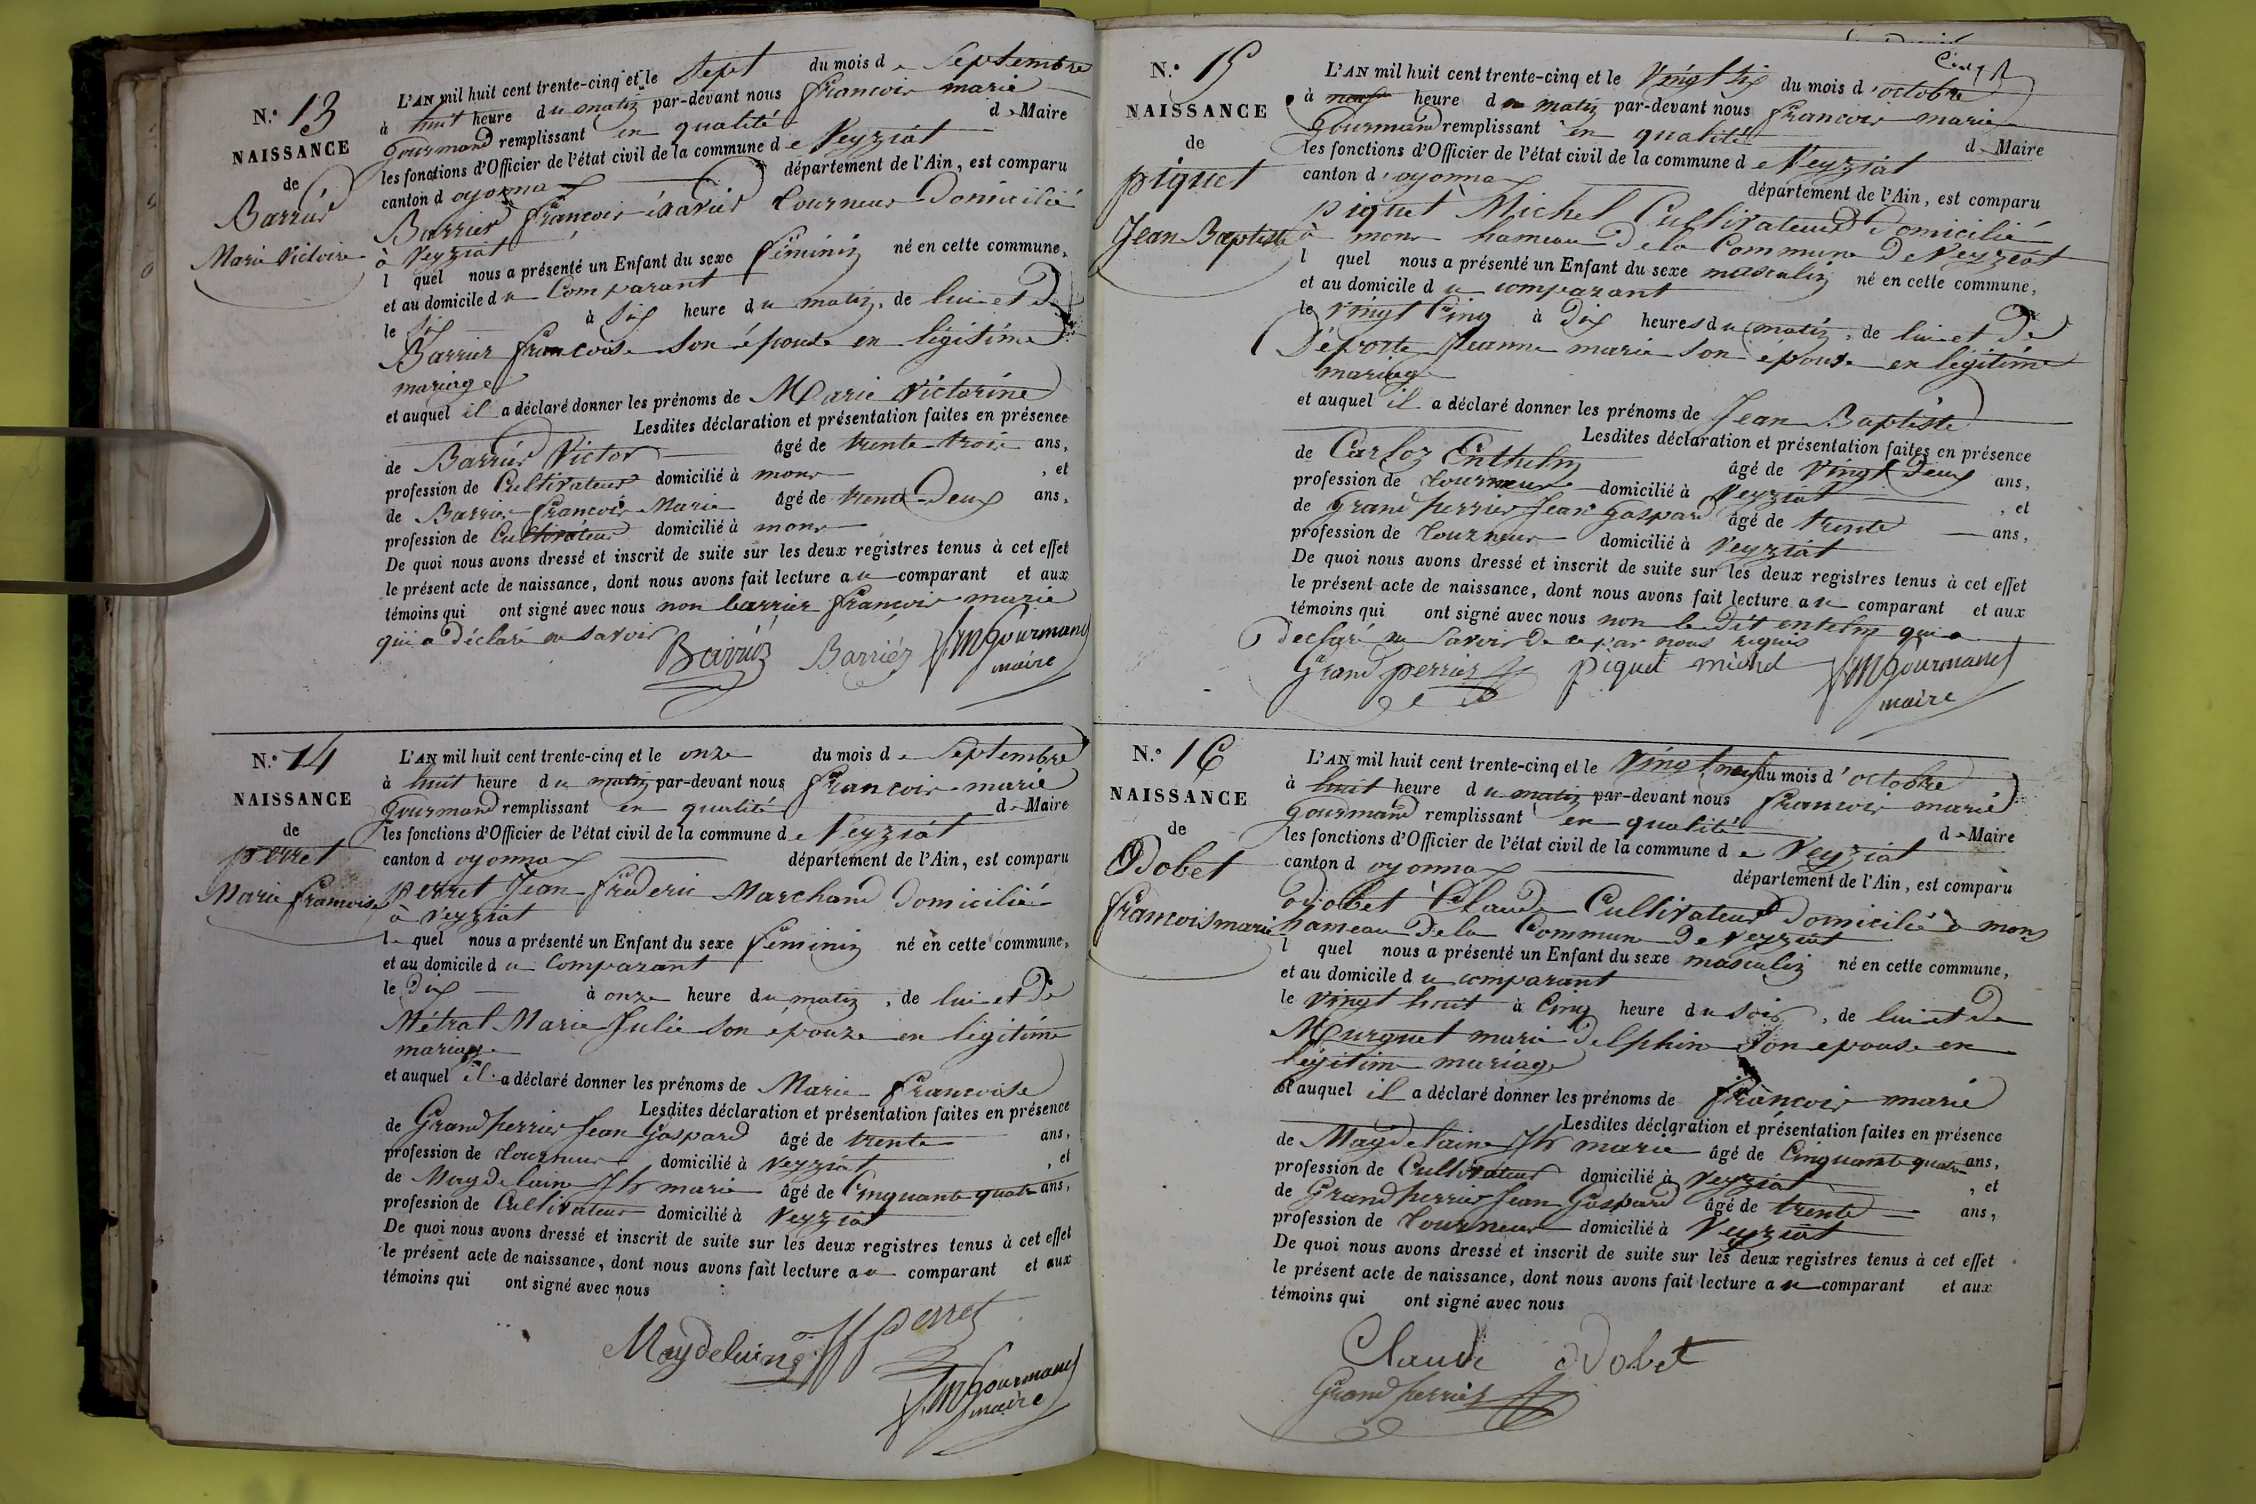 N.° 13
NAISSANCE
de
Barrier
Marie Victoire
L'AN mil huit cent trente-cinq et le sept du mois de Septembre
à huit heure du matin par-devant nous francois marie
gourmand remplissant en qualité de Maire
les fonctions d'Officier de l'état civil de la commune de Veyziat
canton d'oyonnax département de l'Ain, est comparu
Barrier françois Xavier tourneur Domicilié
à Veyziat
l quel nous a présenté un Enfant du sexe féminin né en cette commune,
et au domicile du Comparant
le six à six heure du matin, de lui et De
Barrier francoise son épouse en légitime
mariage
et auquel il a déclaré donner les prénoms de Marie Victorine
Lesdites déclaration et présentation faites en présence
de Barrier Victor âgé de trente trois ans,
profession de Cultivateur domicilié à mons , et
de Barrier francois Marie âgé de trente Deux ans,
profession de Cultivateur domicilié à mons
De quoi nous avons dressé et inscrit de suite sur les deux registres tenus à cet effet
le présent acte de naissance, dont nous avons fait lecture au comparant et aux
témoins qui ont signé avec nous non barrier françois marie
qui a Déclaré ne savoir
Barriéz Barriéz fMGourmand
maire
N.° 14
NAISSANCE
de
perret
Marie francoise
L'AN mil huit cent trente-cinq et le onze du mois de Septembre
à huit heure du matin par-devant nous francois marie
gourmand remplissant en qualité de Maire
les fonctions d'Officier de l'état civil de la commune de Veyziat
canton d oyonnax département de l'Ain, est comparu
perret Jean frederic Marchand Domicilié
à Veyziat
le quel nous a présenté un Enfant du sexe féminin né en cette commune,
et au domicile du Comparant
le Dix à onze heure du matin, de lui et De
Métral Marie Julie son épouze en légitime
mariage
et auquel il a déclaré donner les prénoms de Marie francoise
Lesdites déclaration et présentation faites en présence
de Grandperrier Jean Gaspard âgé de trente ans,
profession de tourneur domicilié à Veyziat , et
de Maydelaine Jh marie âgé de Cinquante quatre ans,
profession de Cultivateur domicilié à Veyziat
De quoi nous avons dressé et inscrit de suite sur les deux registres tenus à cet effet
le présent acte de naissance, dont nous avons fait lecture au comparant et aux
témoins qui ont signé avec nous
Maydelaine perret
fMGourmand
maire
N.° 15
NAISSANCE
de
piquet
Jean Baptiste
Cinq
L'AN mil huit cent trente-cinq et le Vingt six du mois d'octobre
à neuf heure du matin par-devant nous francois marie
gourmand remplissant en qualité de Maire
les fonctions d'Officier de l'état civil de la commune de Veyziat
canton d'oyonnax département de l'Ain, est comparu
piquet Michel Cultivateur Domicilié
à mons hameau De la Commune De Veyziat
l quel nous a présenté un Enfant du sexe masculin né en cette commune,
et au domicile du comparant
le vingt Cinq à Dix heures du matin, de lui et De
Déporte Jeanne marie son épouse en légitime
mariage
et auquel il a déclaré donner les prénoms de Jean Baptiste
Lesdites déclaration et présentation faites en présence
de Carloz Enthelm âgé de vingt Deux ans,
profession de tourneur domicilié à Veyziat , et
de Grandperrier Jean gaspard âgé de trente ans,
profession de tourneur domicilié à Veyziat
De quoi nous avons dressé et inscrit de suite sur les deux registres tenus à cet effet
le présent acte de naissance, dont nous avons fait lecture au comparant et aux
témoins qui ont signé avec nous non le Dit entelm qui a
declaré ne savoir De ce par nous requis
Grandperrier piquet michel fMGourmand
maire
N.° 16
NAISSANCE
de
Odobet
francois marie
L'AN mil huit cent trente-cinq et le Vingt neuf du mois d'octobre
à huit heure du matin par-devant nous francois marie
gourmand remplissant en qualité de Maire
les fonctions d'Officier de l'état civil de la commune de Veyziat
canton d oyonnax département de l'Ain, est comparu
odobet Claude Cultivateur Domicilié à mons
hameau De la Commune De Veyziat
l quel nous a présenté un Enfant du sexe masculin né en cette commune,
et au domicile du comparant
le vingt huit à Cinq heure du soir, de lui et De
Mourguet marie Delphine son epouse en
légitime mariage
et auquel il a déclaré donner les prénoms de françois marie
Lesdites déclaration et présentation faites en présence
de Maydelaine Jh marie âgé de Cinquante quatre ans,
profession de Cultivateur domicilié à Veyziat , et
de Grandperrier Jean Gaspard âgé de trente ans,
profession de tourneur domicilié à Veyziat
De quoi nous avons dressé et inscrit de suite sur les deux registres tenus à cet effet
le présent acte de naissance, dont nous avons fait lecture au comparant et aux
témoins qui ont signé avec nous
Claude Odobet
Grandperrier